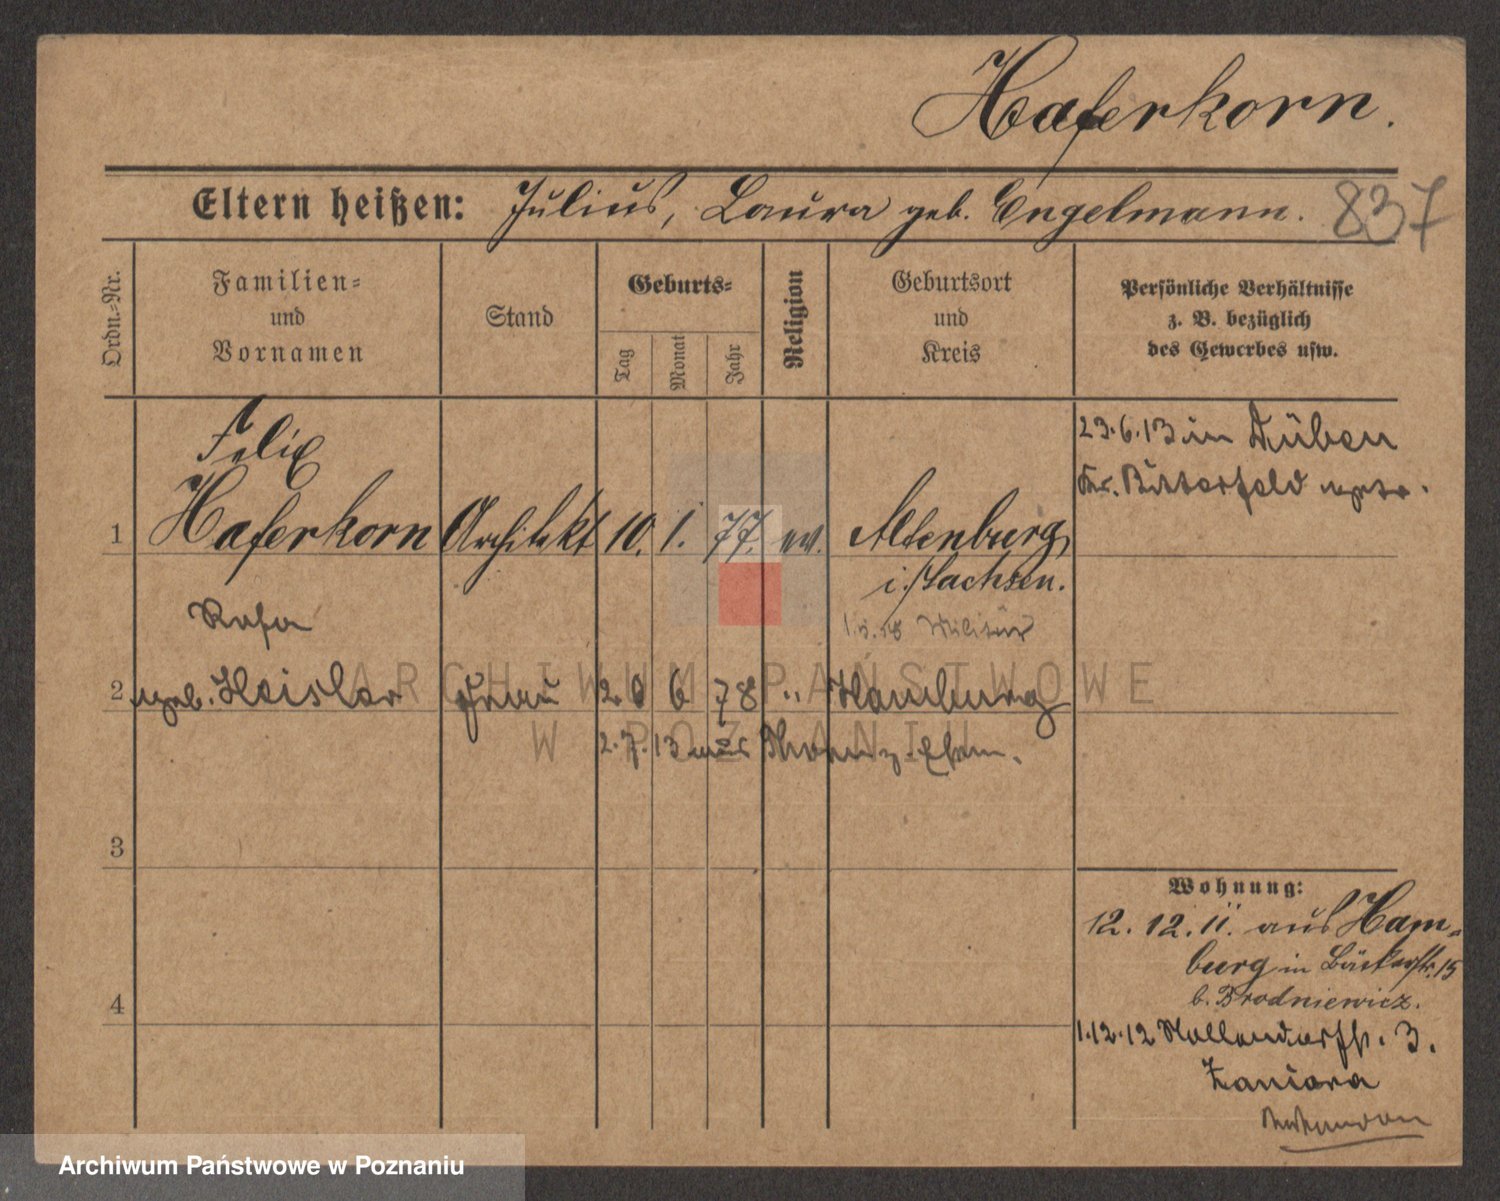 Haferkorn.
Eltern heißen: Julius, Laura geb. Engelmann. 837
Ordn.-Nr.
Familien-
und
Vornamen
Stand
Geburts-
Tag
Monat
Jahr
Religion
Geburtsort
und
Kreis
Persönliche Verhältnisse
z. B. bezüglich
des Gewerbes usw.
Felix
1 Haferkorn Architekt 10. 1. 77. ev. Altenburg
i. Sachsen.
Militär
23.6.13 in Düben
Kr. Bitterfeld
Rosa
2 geb. Heisler Frau 20 6 78 " Hamburg
2.7.13 aus
3
4
Wohnung:
12. 12. 11. aus Ham-
burg in Bäckerstr. 15
b. Brodniewicz.
1.12.12 Hollendorfstr. 3.
Zaniora
ARCHIWUM PAŃSTWOWE
W POZNANIU
Archiwum Państwowe w Poznaniu